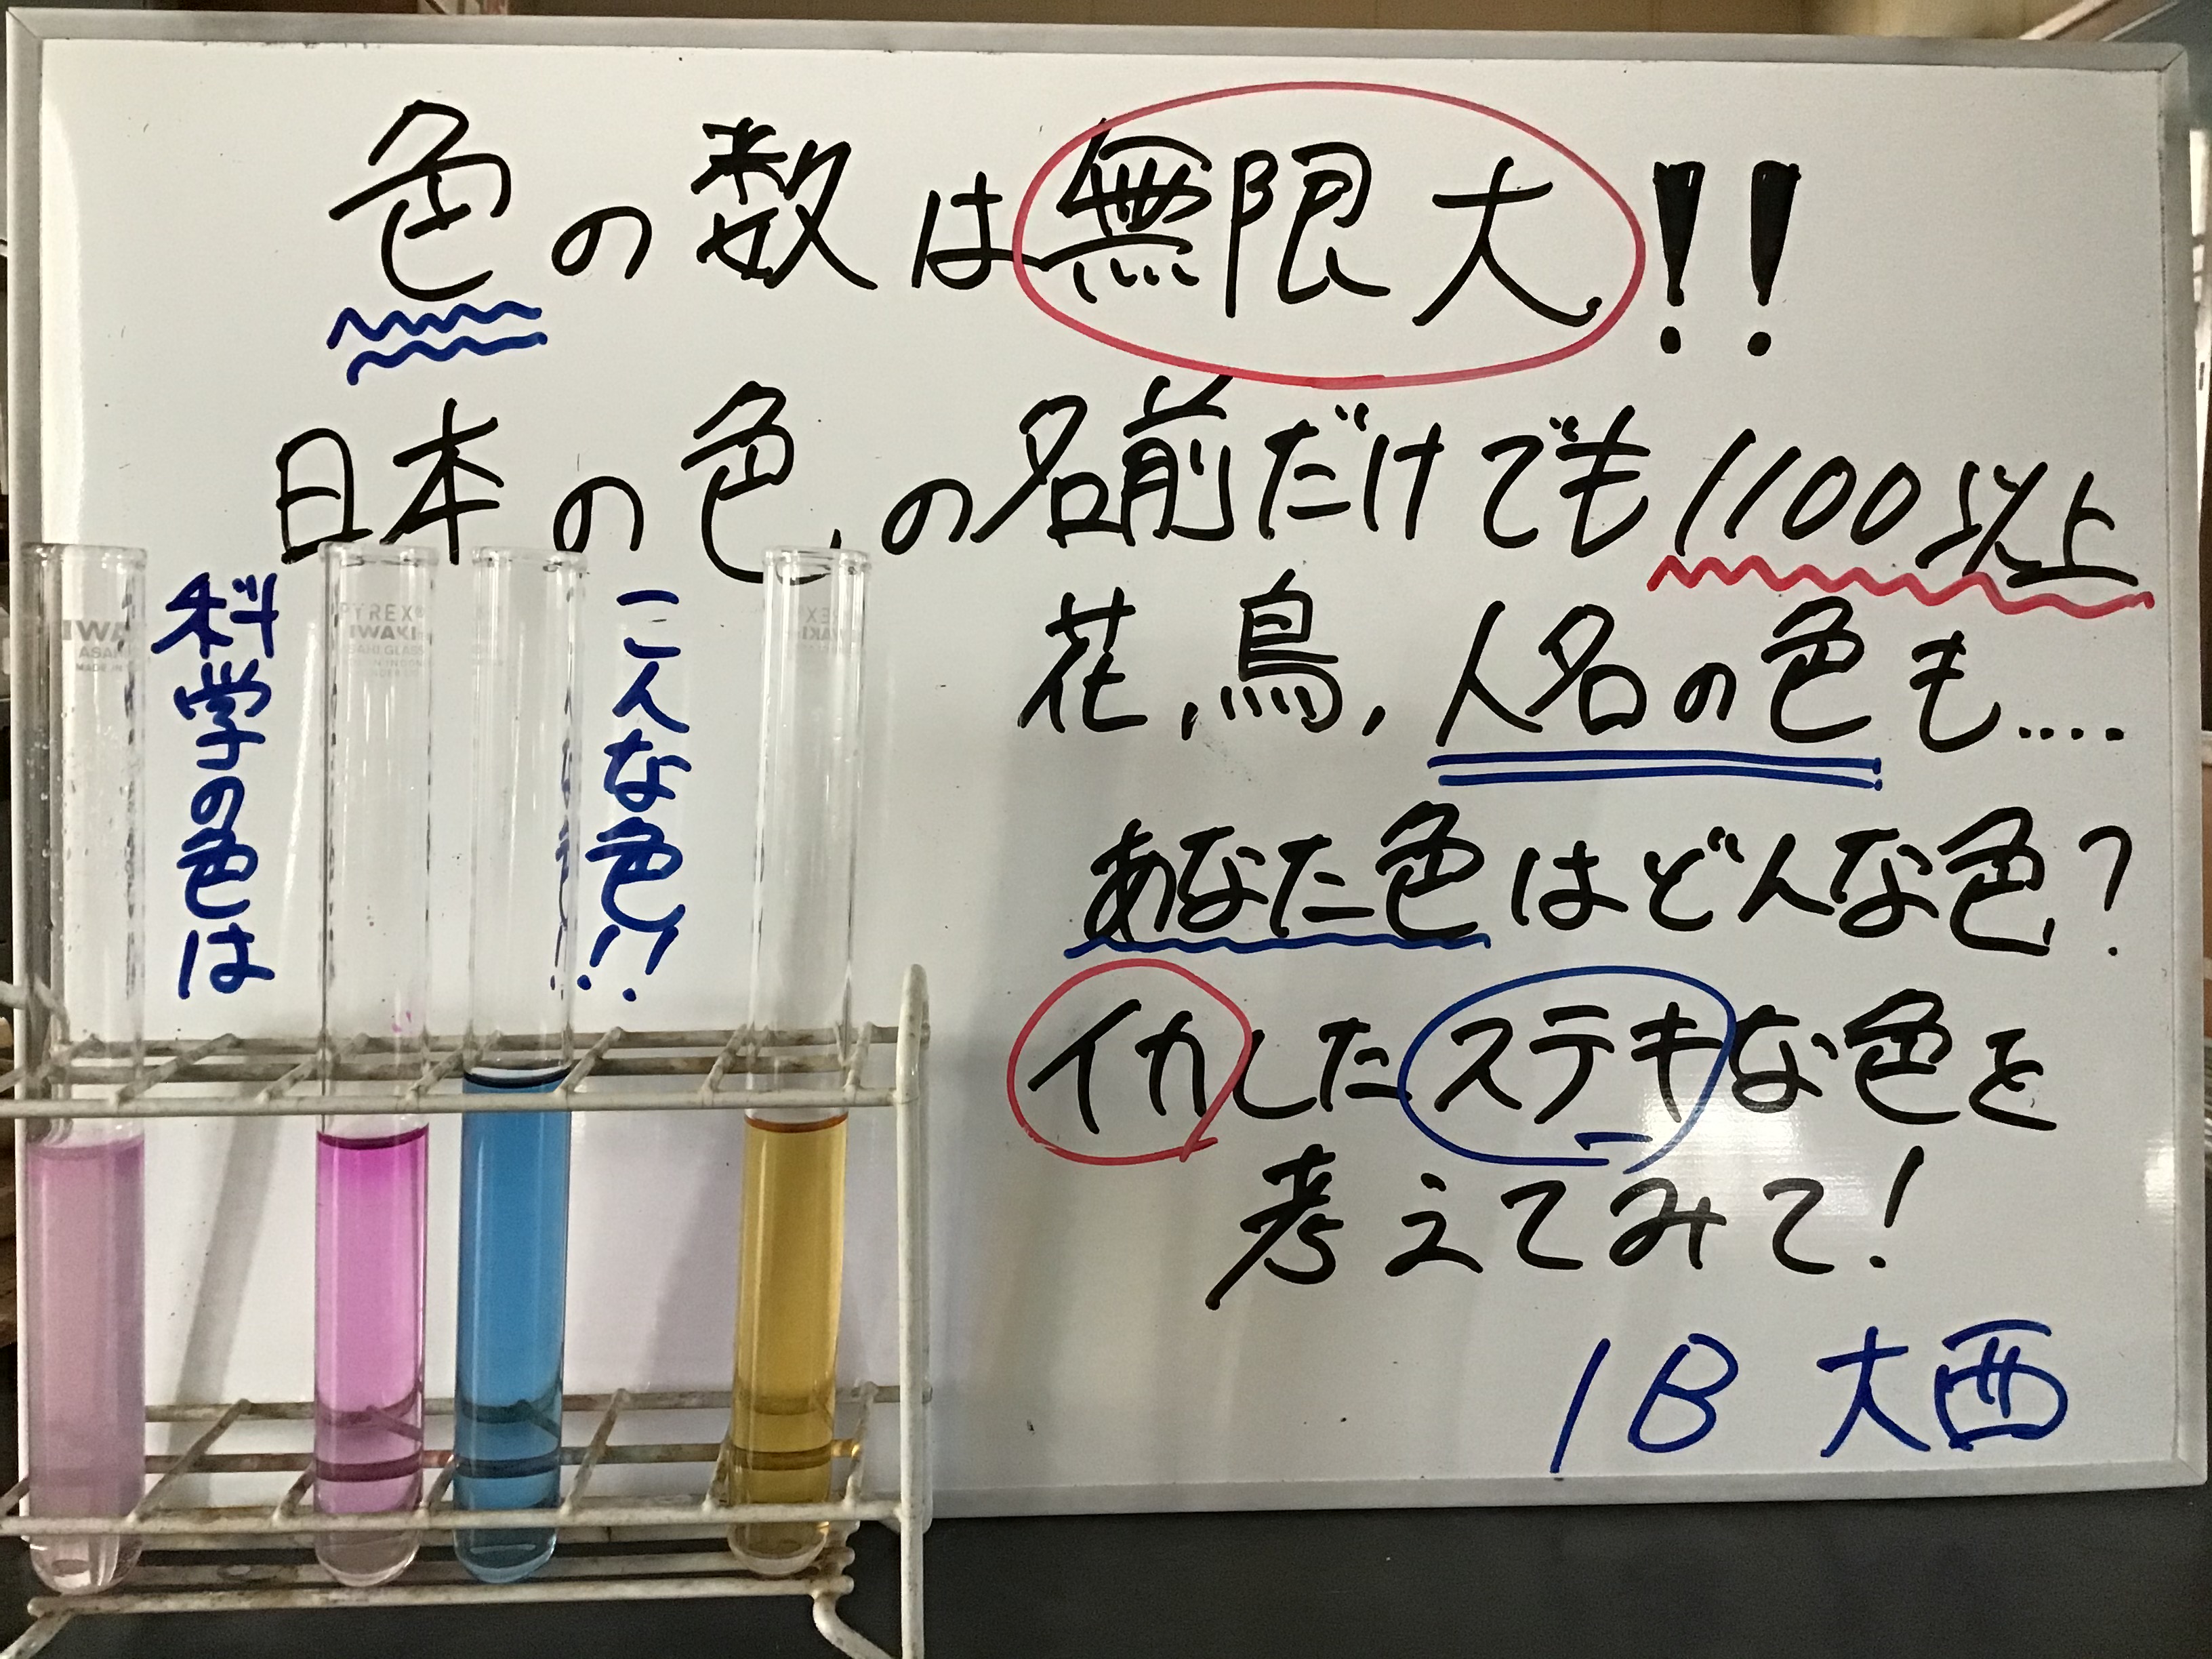 色の数は無限大!!
日本の色の名前だけでも1100以上
花、鳥、人名の色も....
あなた色はどんな色?
イカしたステキな色を
考えてみて!
1B 大西
科学の色は
こんな色!!
IWA
ASAH
MADE IN
PYREX®
IWAKI
ASAHI GLASS